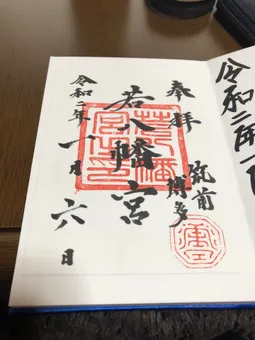 奉拝
筑前
博多
若八幡宮
令和二年一月六日
令和二年一